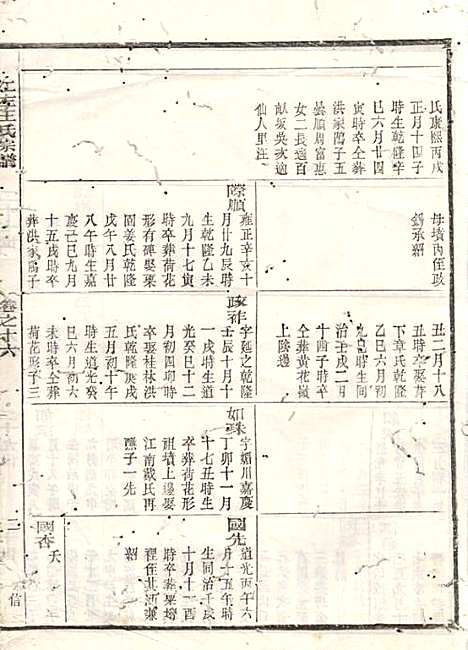 氏康熙丙戌
正月十四子
時生乾隆辛
巳六月廿四
寅時卒仝葬
洪家塆子五
曇順周富惠
女二長適百
畝坂吳次適
仙人里汪
際順
雍正辛亥十
月廿九辰時
生乾隆乙未
九月十七寅
時卒葬荷花
形有碑娶栗
園姜氏乾隆
戊午八月廿
八午時生嘉
慶己巳九月
十五戌時卒
葬洪家塆子
母墳內侄政
鎢承紹
政祚
字延之乾隆
壬辰十月十
一戌時生道
光癸巳十二
月初四卯時
卒娶桂林洪
氏乾隆庚戌
五月初十午
時生道光癸
巳六月初六
未時卒仝葬
荷花形子三
丑二月十八
丑時卒娶葬
下章氏乾隆
乙巳六月初
九亥時生同
治壬戌二月
十四子時卒
仝葬黃花嶺
上陰邊
如珠
字媚川嘉慶
丁卯十一月
十七丑時生
卒葬荷花形
祖墳上邊娶
江南戴氏再
醮子一先
國先
道光丙午六
月十五午時
生同治壬戌
十月十一酉
時卒葬栗塝
程侄其沔兼
紹
國杏
夭
江左王氏宗譜
卷之十六
二
信